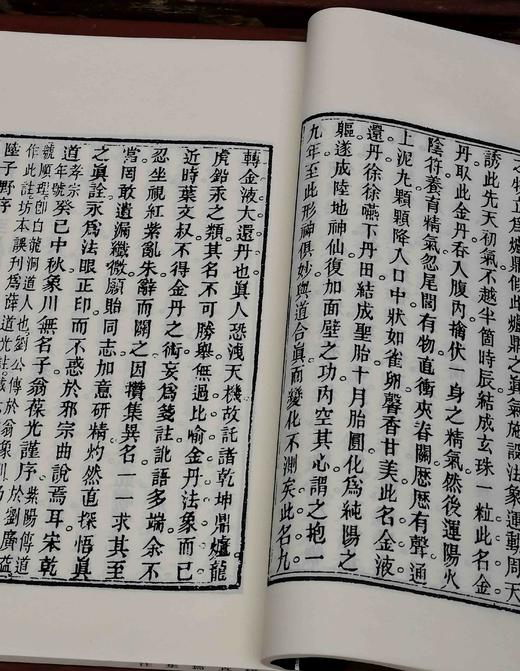 之物立爲爐鼎假此爐鼎之眞氣施設法象運動周天
誘此先天初氣不越半箇時辰結成玄珠一粒此名金
丹取此金丹吞入腹內擒伏一身之精氣然後運陽火
陰符養育精氣忽尾閭有物直衝夾脊關歷歷有聲逆
上泥九顆顆降入口中狀如雀卵馨香甘美此名金液
還丹徐徐嚥下丹田結成聖胎十月胎圓化爲純陽之
軀遂成陸地神仙復加面壁之功內空其心謂之抱一
九年至此形神俱妙與道合眞而變化不測矣此名九
轉金液大還丹也眞人恐洩天機故託諸乾坤鼎爐龍
虎鉛汞之類其名不可勝舉無過比喻金丹法象而已
近時葉文叔不得金丹之術妄爲箋註訛語多端余不
忍坐視紅紫亂朱辭而闢之因攢集異名一一求其至
當罔敢遺漏纖微願貽同志加意研精灼然直探悟眞
之眞詮永爲法眼正印而不惑於邪宗曲說焉耳宋乾
道孝宗年號癸巳中秋象川無名子翁葆光謹序紫陽傳道
於劉廣益
號順理卽白龍洞道人也劉公傳於翁象川
作此註坊本誤刋爲薛道光註
陸子野序